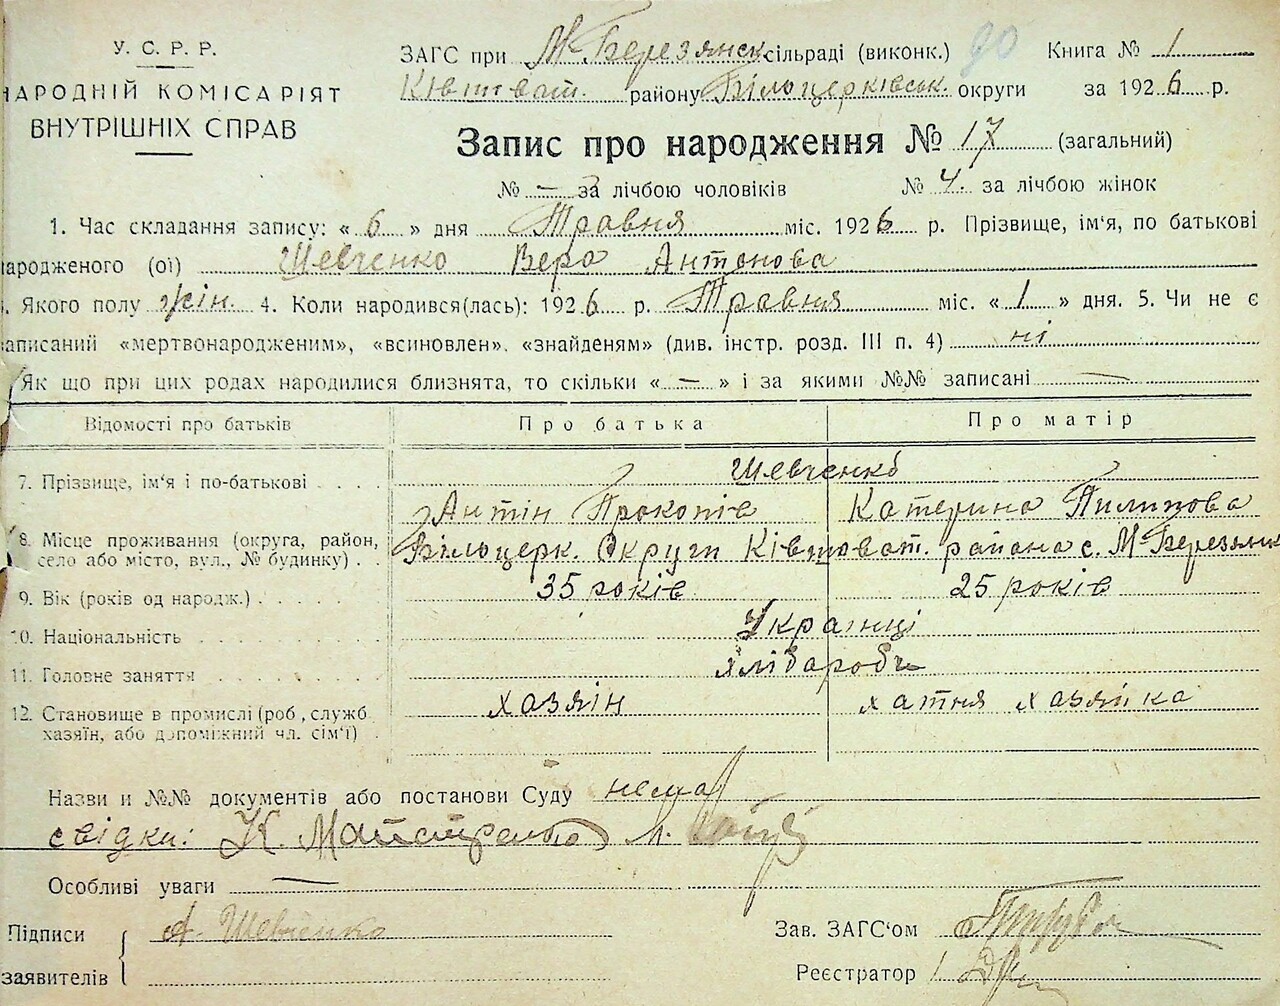 У. С. Р. Р.
НАРОДНІЙ КОМІСАРІЯТ
ВНУТРІШНІХ СПРАВ
ЗАГС при М Березянск сільраді (виконк.) 90 Книга № 1
Ківшоват. району Білоцерківськ. округи за 1926 р.
Запис про народження № 17 (загальний)
№ — за лічбою чоловіків № 4. за лічбою жінок
1. Час складання запису: « 6 » дня Травня міс. 1926 р. Прізвище, ім'я, по батькові
ародженого (ої) Шевченко Вера Антонова
. Якого полу жін. 4. Коли народився(лась): 1926 р. Травня міс. « 1 » дня. 5. Чи не є
аписаний «мертвонародженим», «всиновлен», «знайденям» (див. інстр. розд. III п. 4) ні
Як що при цих родах народилися близнята, то скільки « — » і за якими №№ записані —
Відомості про батьків Про батька Про матір
7. Прізвище, ім'я і по-батькові . . . Шевченко
Антін Прокопів Катерина Пилипова
8. Місце проживання (округа, район, село або місто, вул., № будинку) . . Білоцерк. Округи Ківшоват. района с. М Березянк
9. Вік (років од народж.) . . . . 35 років 25 років
10. Національність . . . . . . . Українці
11. Головне заняття . . . . . . Хлібароби
12. Становище в промислі (роб., служб. хазяїн, або допоміжний чл. сім'ї) . хазяін хатня хазяйка
Назви и №№ документів або постанови Суду нема
свідки: К. Майстренко М.
Особливі уваги —
Підписи заявителів А. Шевченко
Зав. ЗАГС'ом
Реєстратор